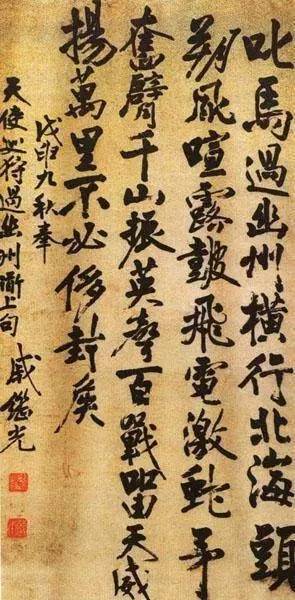 叱馬過幽州橫行北海頭
朔風喧露鼓飛電激蛇矛
奮臂千山振英聲百戰留天威
揚萬里不必侈封矦
戊申九秋奉
天使狩過幽州上句 戚繼光